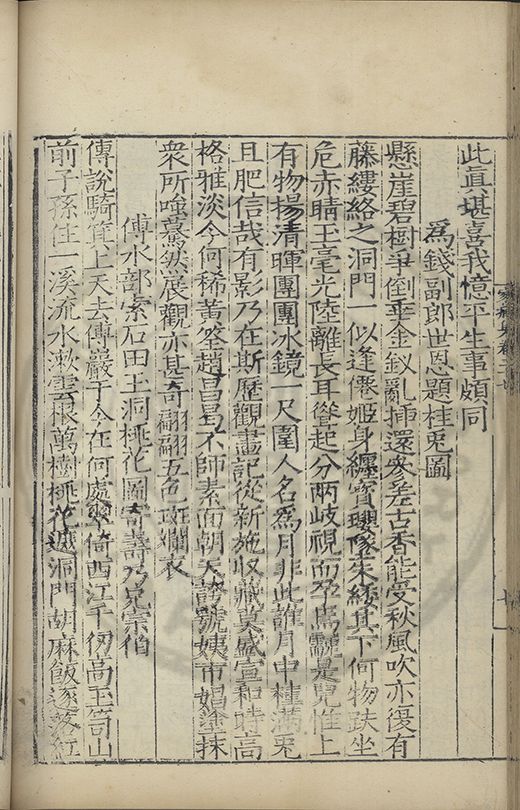 此眞堪喜我憶平生事頗同
爲錢副郎世恩題桂兎圖
懸崖碧樹爭倒垂金釵亂揷還參差古香能受秋風吹亦復有
藤縷絡之洞門一似逢僊姬身纏寶瓔墜朱絲其下何物趺坐
危赤睛玉毫光陸離長耳聳起分兩歧視而孕爲是兒惟上
有物揚清暉團團冰鏡一尺圍人名爲月非此誰月中種滿兎
且肥信哉有影乃在斯歷觀畫記從新施收藏莫盛宣和時高
格雅淡今何稀黃筌趙昌昌不師素面朝天號姨市娼塗抹
衆所嗤驀然展觀亦甚奇翩翩五色斑斕衣
傅水部索石田玉洞桃花圖寄壽乃兄宗伯
傅說騎箕上天去傅巖于今在何處倚西江千仞高玉笥山
前子孫住一溪流水漱雲根萬樹桃花遮洞門胡麻飯逐落紅